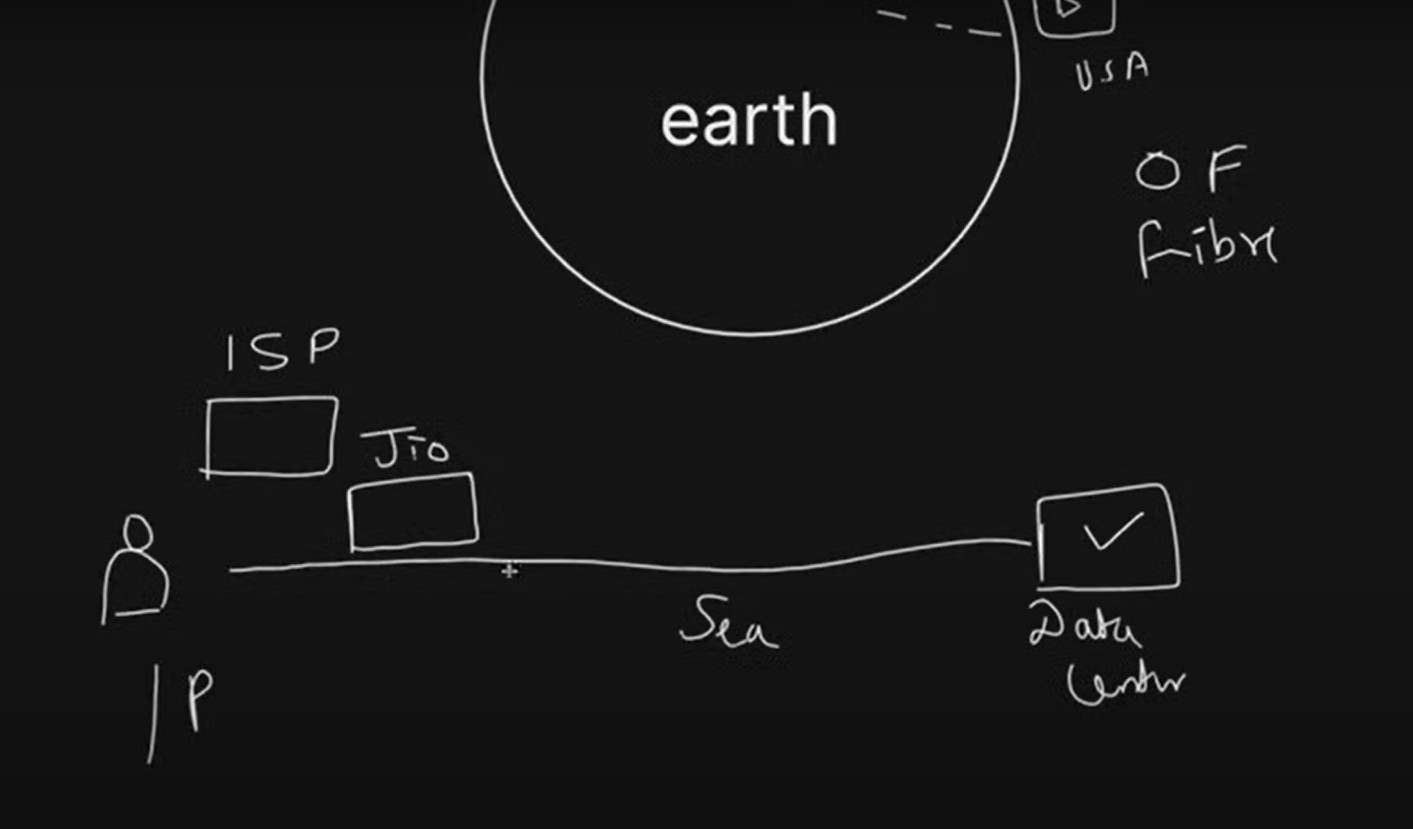 USA
earth
OF
fibre
ISP
Jio
Sea
Data
Center
IP